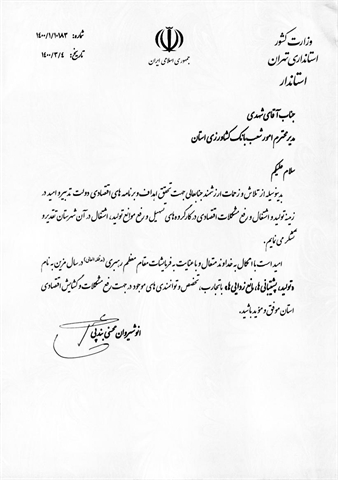 وزارت کشور
استانداری تهران
استاندار
جمهوری اسلامی ایران
شماره: ۱۴۰۰/۱/۱۰۱۸۳
تاریخ: ۱۴۰۰/۳/۴
جناب آقای شهدی
مدیر محترم امور شعب بانک کشاورزی استان
سلام علیکم
بدینوسیله از تلاش و زحمات ارزشمند جنابعالی جهت تحقق اهداف و برنامه های اقتصادی دولت تدبیر و امید در
زمینه تولید و اشتغال و رفع مشکلات اقتصادی در کارگروه های تسهیل و رفع موانع تولید، اشتغال در آن شهرستان تقدیر و
تشکر می نمایم.
امید است با اتکال به خداوند متعال و با عنایت به فرمایشات مقام معظم رهبری در سال مزین به نام
«تولید، پشتیبانی ها، مانع زدایی ها» با تجارب، تخصص و توانمندی های موجود در جهت رفع مشکلات و گشایش اقتصادی
استان موفق و مؤید باشید.
انوشیروان محسنی بندپی